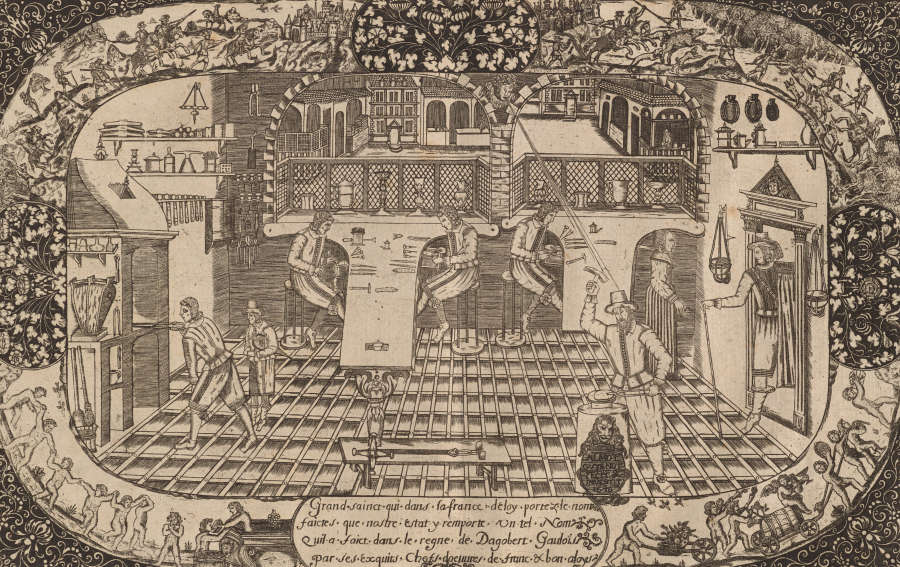 Grand · sainct · qui · dans · la france · deloy · portez le nom
faictes · que · nostre · estat · y remporte · Un · tel · Nom
Quil · a · faict · dans · le regne · de · Dagobert
par · ses · exquis · Chefs · doeuures · de · franc · & bon · aloys